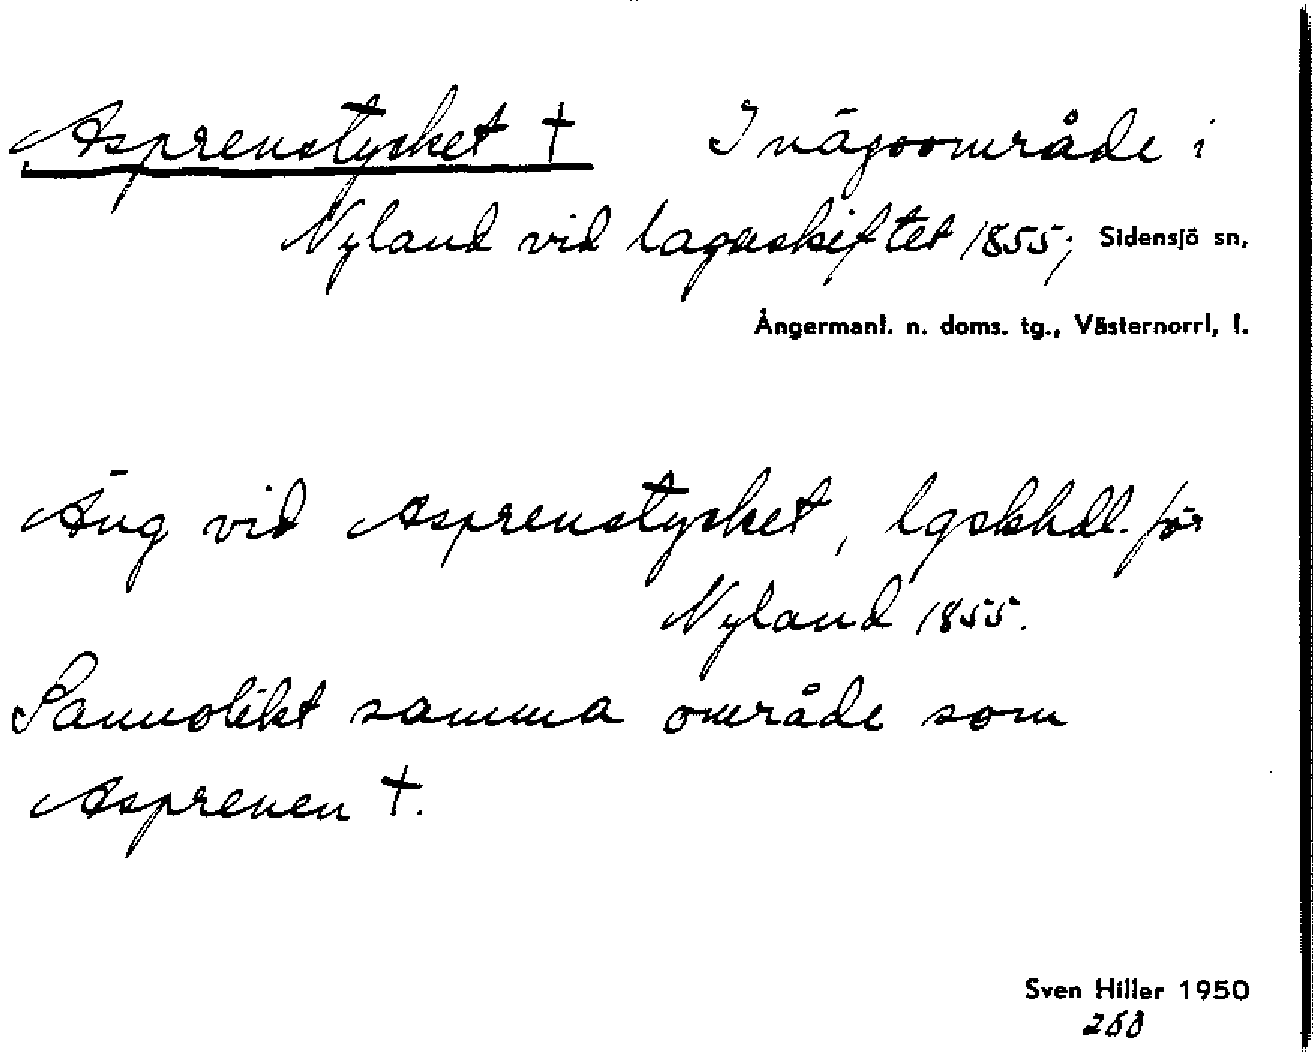 Asprenstycket † Inägoområde i
Nyland vid lagaskiftet 1855; Sidensjö sn,
Ångermanl. n. doms. tg., Västernorrl, l.
Äng vid Asprenstycket, lgskhdl. för
Nyland 1855.
Sannolikt samma område som
Asprenen †.
Sven Hiller 1950